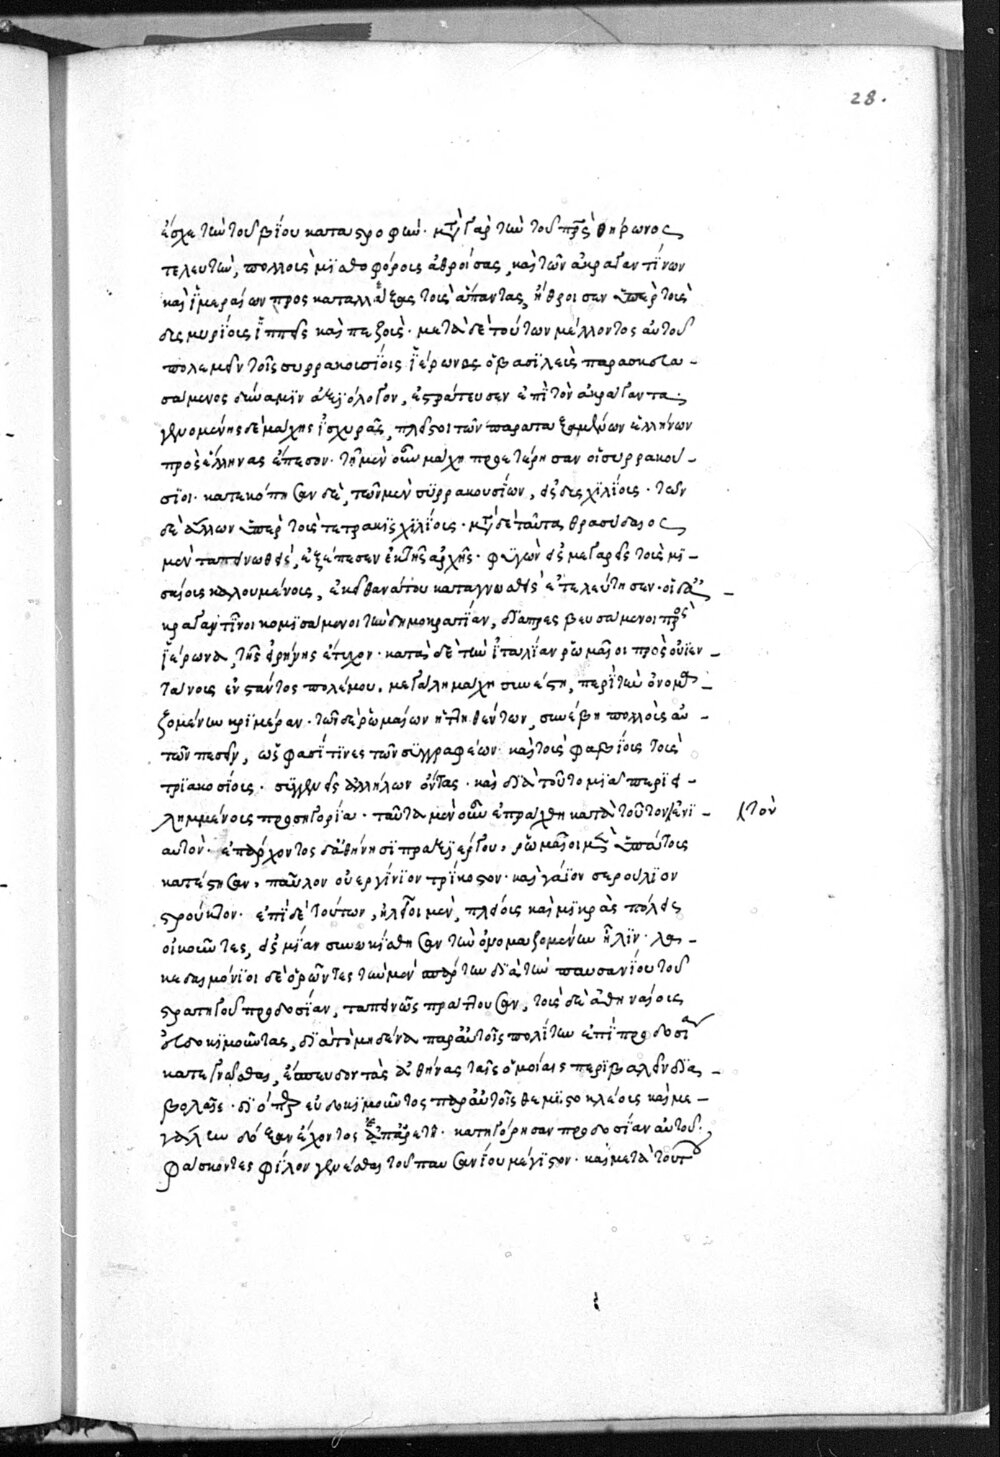 28.
ἔσχε τὴν τοῦ βίου καταστροφήν. μετὰ γὰρ τὴν τοῦ πατρὸς θήρωνος
τελευτὴν, πολλοὺς μισθοφόρους ἀθροίσας, καὶ τῶν ἀκραγαντίνων
καὶ ἱμεραίων προσκαταλλέξας τοὺς ἅπαντας, ἤθροισεν ὑπὲρ τοὺς
δισμυρίους ἱππεῖς καὶ πεζούς. μετὰ δὲ τούτων μέλλοντος αὐτοῦ
πολεμεῖν τοῖς συρρακουσίοις ἱέρωνος ὁ βασιλεὺς παρασκευα-
σάμενος δύναμιν ἀξιόλογον, ἐστράτευσεν ἐπὶ τὸν ἀκράγαντα.
γενομένης δὲ μάχης ἰσχυρᾶς, πλεῖστοι τῶν παραταξαμένων ἑλλήνων
πρὸς ἕλληνας ἔπεσον. τῇ μὲν οὖν μάχη προετέρησαν οἱ συρρακού-
σιοι. κατεκόπησαν δὲ, τῶν μὲν συρρακουσίων, εἰς δισχιλίους. τῶν
δὲ ἄλλων ὑπὲρ τοὺς τετρακισχιλίους. μετὰ δὲ ταῦτα θρασύδαιος
μὲν ταπεινωθεὶς, ἐξέπεσεν ἐκ τῆς ἀρχῆς. φυγὼν εἰς μεγαρεῖς τοὺς μι-
σαίους καλουμένους, ἐκεῖ θανάτου καταγνωσθεὶς ἐτελεύτησεν. οἱ δ' ἀ-
κραγαντῖνοι κομισάμενοι τὴν δημοκρατίαν, διαπρεσβευσάμενοι πρὸς
ἱέρωνα, τῆς εἰρήνης ἔτυχον. κατὰ δὲ τὴν ἰταλίαν ῥωμαίοι πρὸς οὐϊεν-
τανοὺς ἐνστάντος πολέμου. μεγάλη μάχη συνέστη, περὶ τὴν ὀνομα-
ζομένην κριμέραν. τῶν δὲ ῥωμαίων ἡττηθέντων, συνέβη πολλοὺς αὐ-
τῶν πεσεῖν, ὥς φασί τινες τῶν συγγραφέων. καὶ τοὺς φαβίους τοὺς
τριακοσίους. συγγενεῖς ἀλλήλων ὄντας. καὶ διὰ τοῦτο μιᾶ περιει-
λημμένους προσηγορία. ταῦτα μὲν οὖν ἐπράχθη κατὰ τοῦτον ἐνι-
(τὸν
αυτόν. ἐπ' ἄρχοντος δ' ἀθήνησι πραξιέργου. ῥωμαῖοι μὲν ὑπάτους
κατέστησαν, παῦλον οὐεργίνιον τρίκοστον. καὶ γάϊον σερουίλιον
στρούκτον. ἐπὶ δὲ τούτων, ἠλεῖοι μὲν, πλείους καὶ μικρὰς πόλεις
οἰκοῦντες, εἰς μίαν συνωκίσθησαν τὴν ὀνομαζομένην ἦλιν. λα-
κεδαιμόνιοι δὲ ὁρῶντες τὴν μὲν σπάρτην διὰ τὴν παυσανίου τοῦ
στρατηγοῦ προδοσίαν, ταπεινῶς πράττουσαν, τοὺς δὲ ἀθηναίους
εὐδοκιμοῦντας, διὰ τὸ μηδένα παρ' αὐτοῖς πολίτην ἐπὶ προδοσίᾳ
κατεγνῶσθαι, ἔσπευδον τὰς ἀθήνας ταῖς ὁμοίαις περιβαλεῖν δια-
βολαῖς. διόπερ εὐδοκιμοῦντος παρ' αὐτοῖς θεμιστοκλέους καὶ με-
γάλην δόξαν ἔχοντος ἐπ' ἀρετῆ. κατηγόρησαν προδοσίαν αὐτοῦ.
φάσκοντες φίλον γενέσθαι τοῦ παυσανίου μέγιστον. καὶ μετὰ τούτου